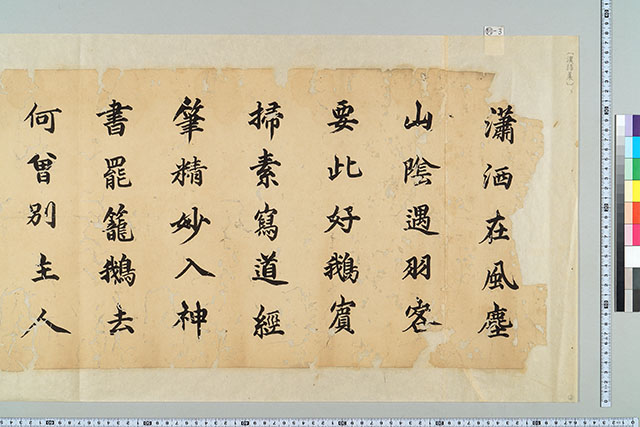 瀟洒在風塵
山陰遇羽客
要此好鵝賓
掃素寫道經
筆精妙入神
書罷籠鵝去
何曾別主人